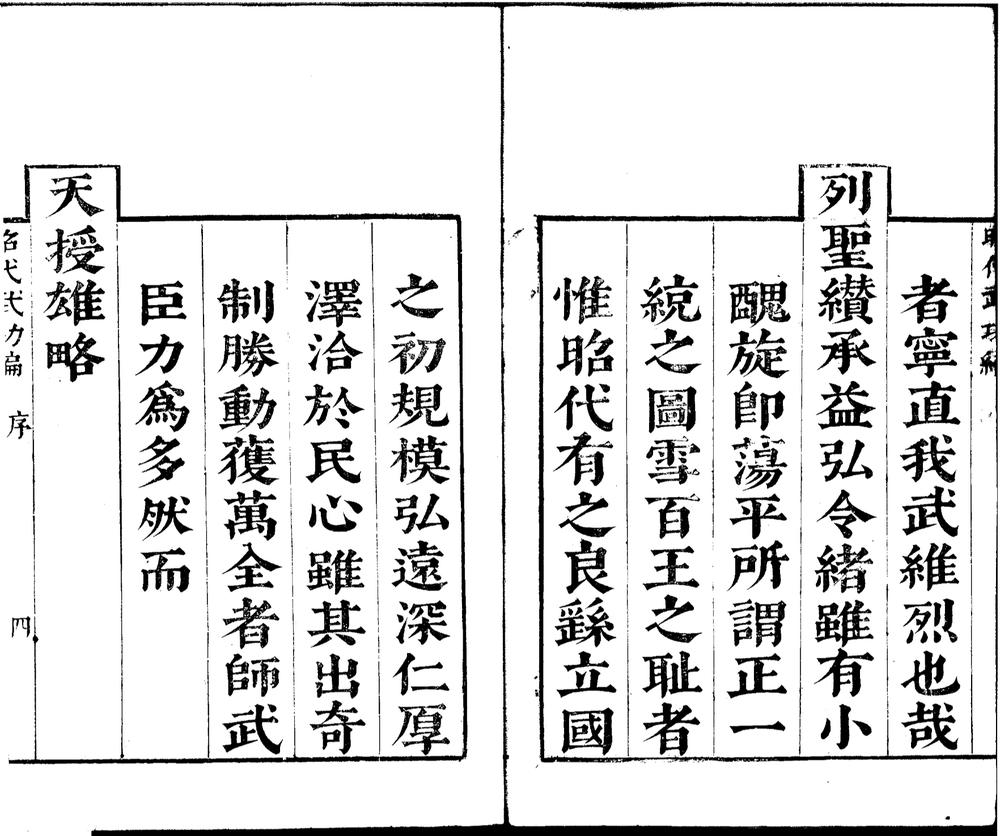 者寧直我武維烈也哉
列聖纉承益弘令緒雖有小
醜旋卽蕩平所謂正一
統之圖雪百王之耻者
惟昭代有之良繇立國
之初規模弘遠深仁厚
澤洽於民心雖其出奇
制勝動獲萬全者師武
臣力爲多然而
天授雄略
名代武功編 序 四